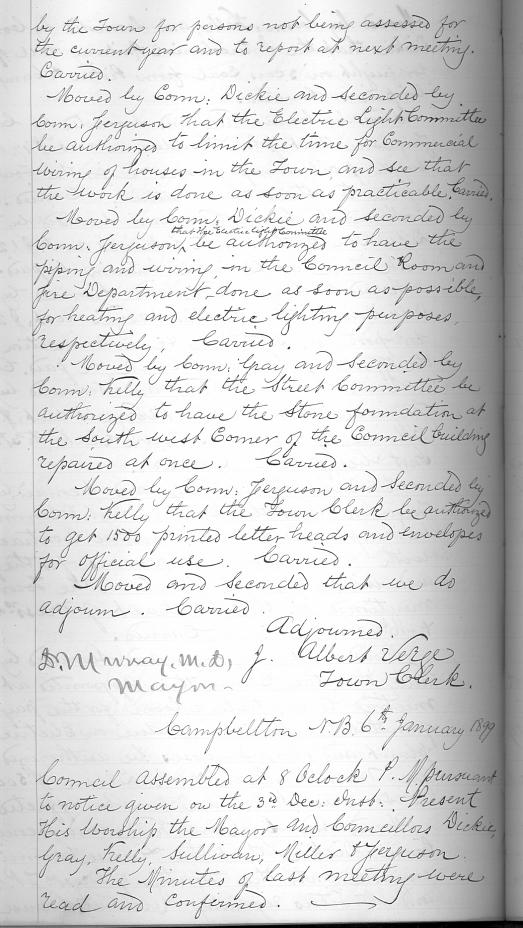 by the Town for persons not being assessed for
the current year and to report at next meeting.
Carried.
Moved by Conn: Dickie and seconded by
Conn: Ferguson that the Electric Light Committee
be authorized to limit the time for Commercial
wiring of houses in the Town, and see that
the work is done as soon as practicable. Carried.
Moved by Conn: Dickie and seconded by
that the Electric Light Committee
Conn: Ferguson, be authorized to have the
piping and wiring in the Council Room and
fire Department done as soon as possible,
for heating and electric lighting purposes,
respectively. Carried.
Moved by Conn: Gray and seconded by
Conn: Kelly that the Street Committee be
authorized to have the Stone foundation at
the South west Corner of the Council building
repaired at once. Carried.
Moved by Conn: Ferguson and seconded by
Conn: Kelly that the Town Clerk be authorized
to get 1500 printed letter heads and envelopes
for official use. Carried.
Moved and Seconded that we do
adjourn. Carried.
Adjourned.
D. Murray, M.D, J. Albert Verge
Mayor Town Clerk.
Campbellton N.B. 6th January 1899
Council Assembled at 8 Oclock P.M pursuant
to notice given on the 3rd Dec: Inst. Present
His Worship the Mayor and Councillors Dickie,
Gray, Kelly, Sullivan, Miller & Ferguson.
The Minutes of last meeting were
read and confirmed.